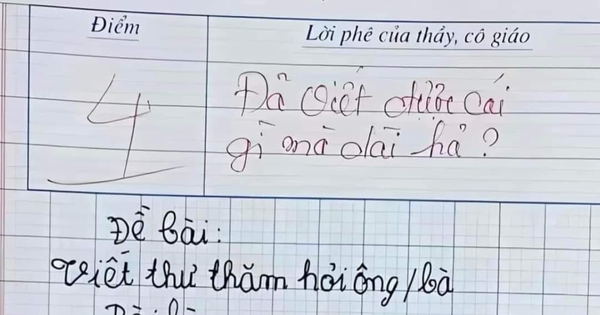 Điểm
Lời phê của thầy, cô giáo
4
Đã viết được cái
gì mà dài hả?
Đề bài:
Viết thư thăm hỏi ông/bà